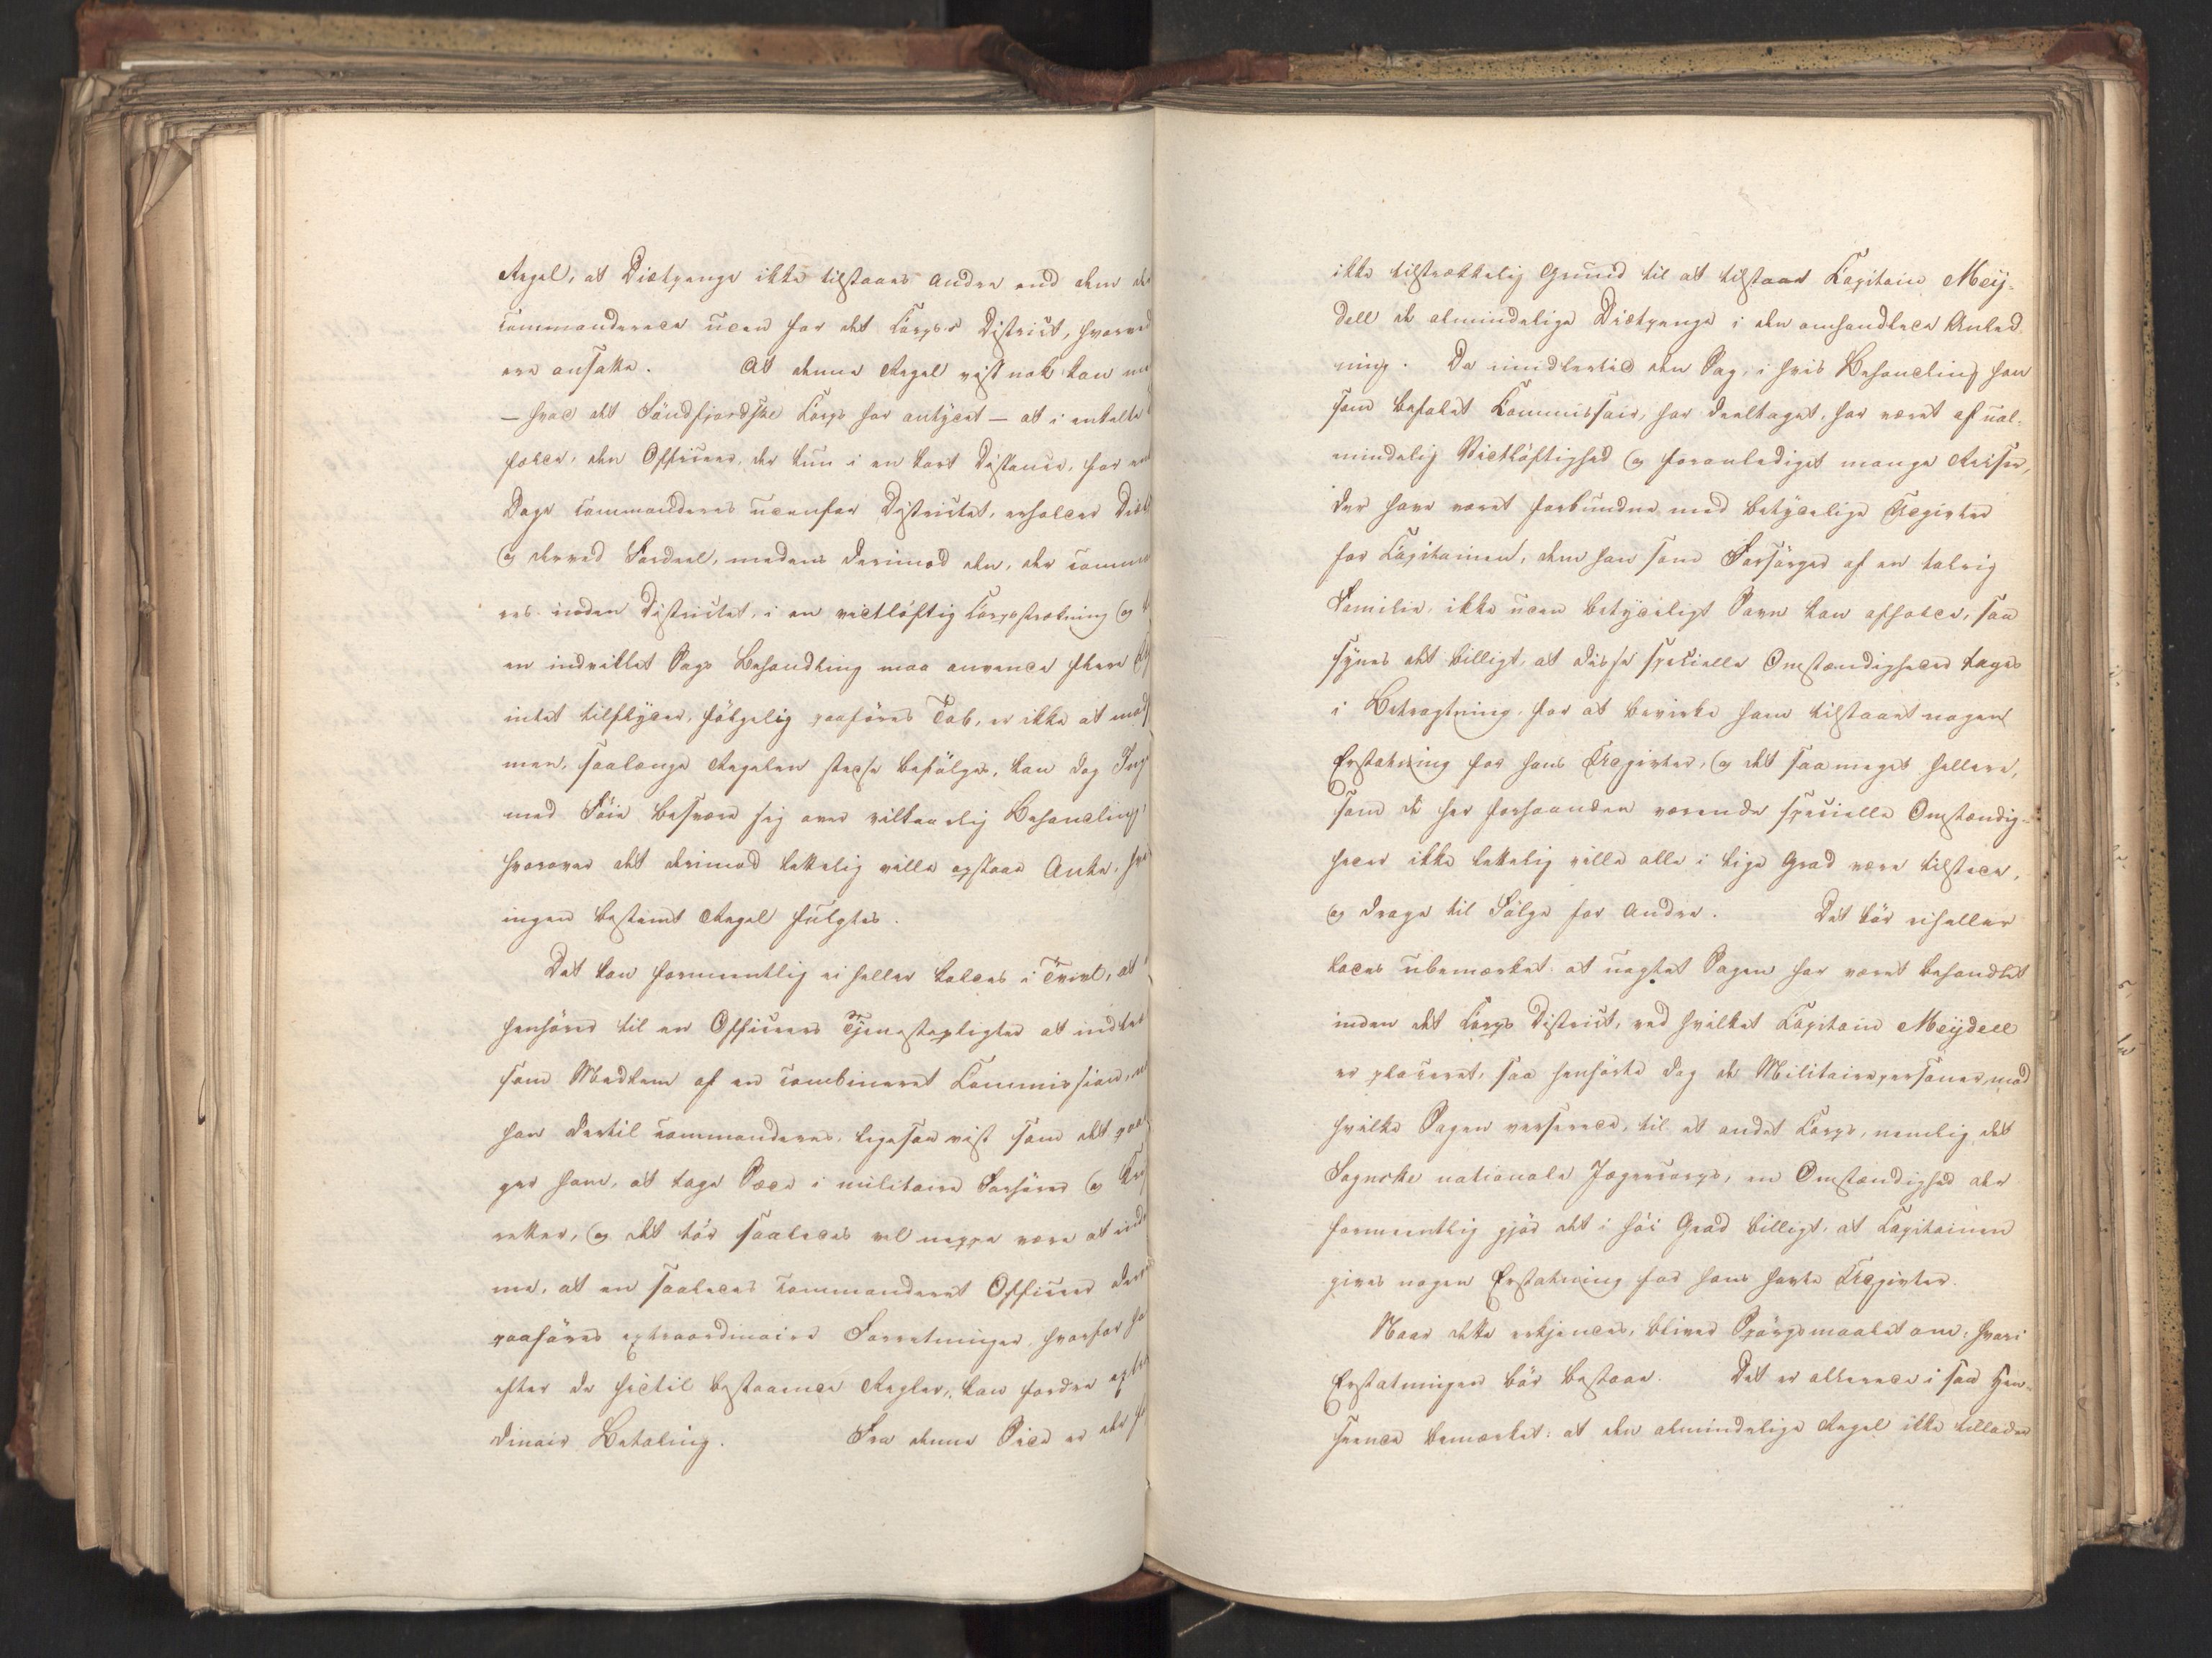 Regel, at Diætpenge ikke tilstaaes Andre end dem der
commanderede uden for det Corps's District, hvorved
ere ansatte. At denne Regel vist nok kan
— hvad det Söndfjordske Corps har antydet — at i enkelte
den Officeer, der kun i en kort Distance, for
Dage commanderes udenfor Districtet, erholder
og derved Fordeel, medens derimod den, der
res inden Districtet, i en vidtløftig Corpsstrækning og
en indviklet Sags Behandling maa anvende flere
intet tilflyder, følgelig paaføres Tab, er ikke at
men, saalænge Regelen stedse befølges, kan dog
med Føie besvære sig over vilkaarlig Behandling,
hvorover det derimod lettelig ville opstaae Anke,
ingen bestemt Regel fulgtes.
Det kan formeentlig ei heller holdes i Tvivl, at
henhører til en Officeers Tjenestepligter at
som Medlem af en combineret Commission,
han dertil commanderes, ligesaavist som det
ger ham, at tage Sæde i militaire Forhører og
retter, og det tör saaledes vel neppe være at
me, at en saaledes commanderet Officeer
paaføres extraordinaire Forretninger, hvorfor
efter de hidtil bestaaende Regler, kan fordre
dinair Betaling. Fra denne Side er der
ikke tilstrækkelig Grund til at tilstaae Capitain Mey-
dell de almindelige Diætpenge i den omhandlede Anled
ning. Da imidlertid den Sag, i hvis Behandling han
som befalet Commissair, har deeltaget, har været af ual-
mindelig Vidtløftighed og foranlediget mange Reiser,
der have været forbundne med betydelige Udgivter
for Capitainen, dem han som Forsørger af en talrig
Familie, ikke uden betydeligt Savn kan afholde, saa
synes det billigt, at disse specielle Omstændigheder tages
i Betragtning, for at bevirke ham tilstaaet nogen
Erstatning for hans Udgivter, og det saameget hellere,
som de her forhaanden værende specielle Omstændig-
heder ikke lettelig ville alle i lige Grad være tilstede,
og drage til Følge for Andre. Det bör eiheller
lades ubemærket at uagtet Sagen har været behandlet
inden det Corps District, ved hvilket Capitain Meydell
er placeret, saa henhørte dog de Militairepersoner, mod
hvilke Sagen verserede, til et andet Corps, nemlig det
Sognske nationale Jægercorps, en Omstændighed der
formeentlig gjör det i höi Grad billigt, at Capitainen
gives nogen Erstatning for hans havte Udgivter.
Naar dette erkjendes, bliver Spörgsmaalet om: hvori
Erstatningen bör bestaae. Det er allerede i saa Hen-
seende bemærket: at den almindelige Regel ikke tillader